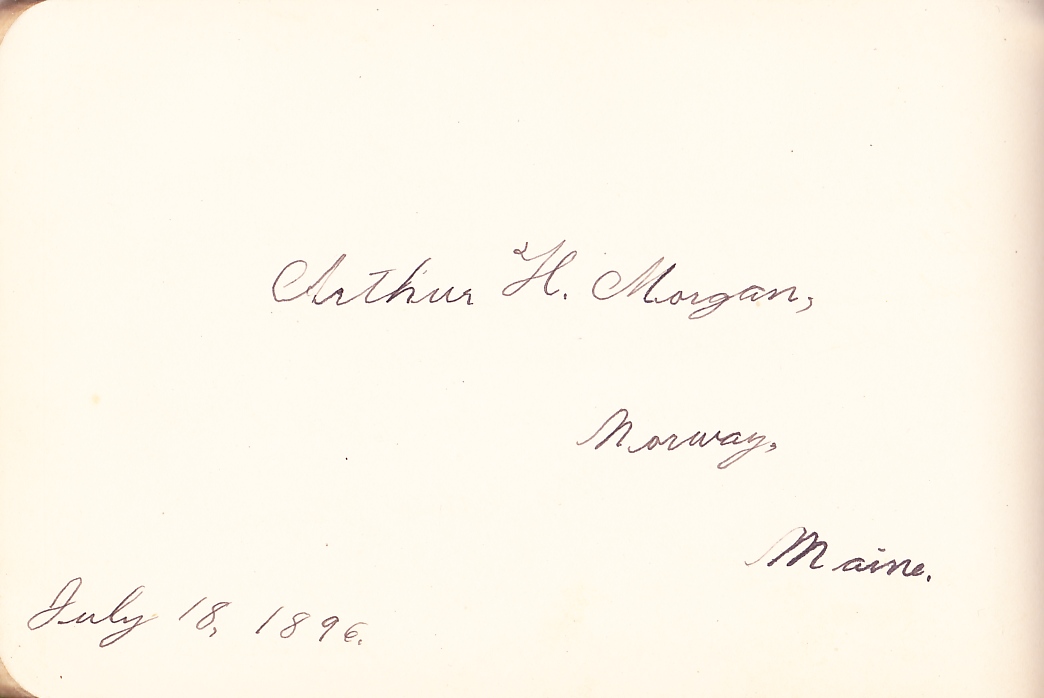 Arthur H. Morgan,
Norway,
Maine.
July 18, 1896.